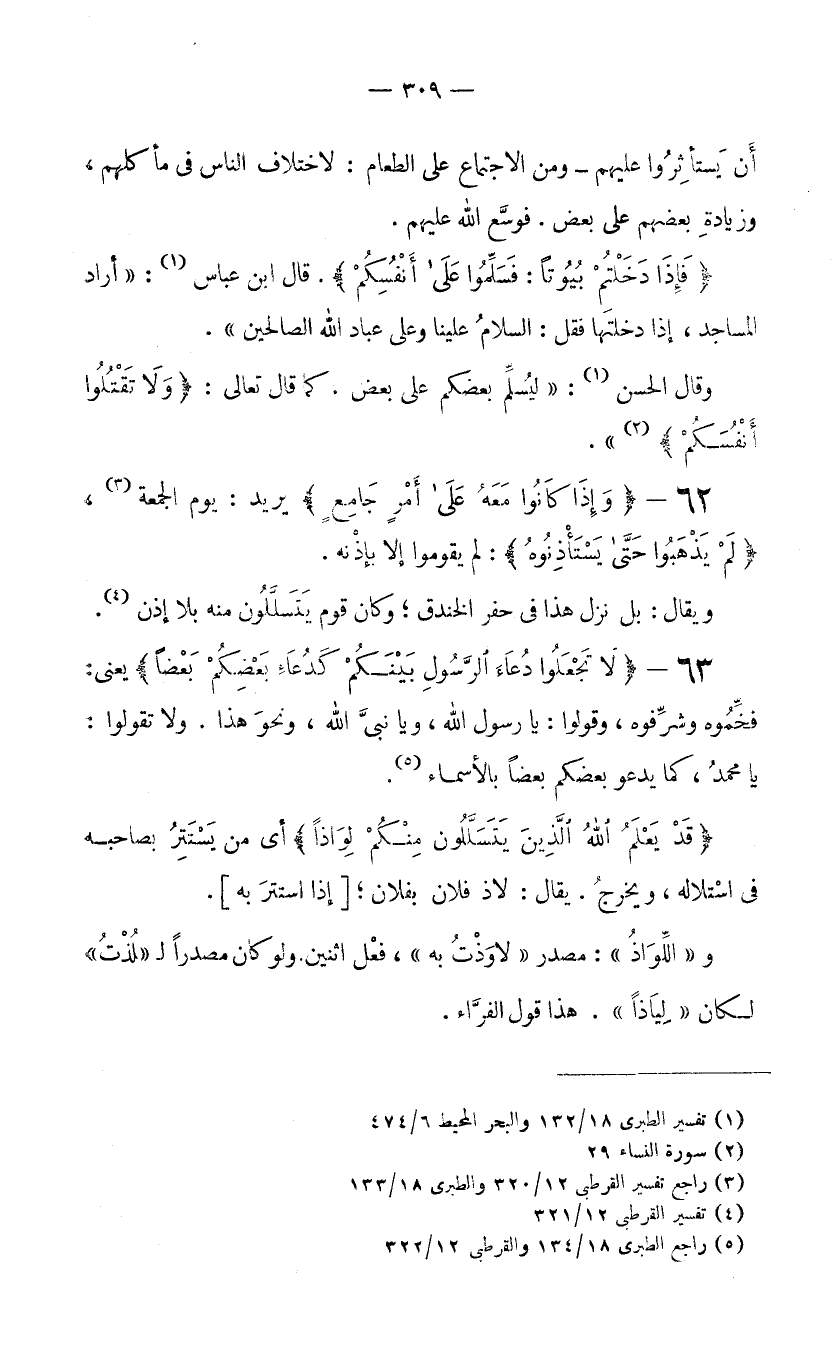 — ٣٠٩ —
أَن يَستأثِرُوا عليهم – ومن الاجتماع على الطعام : لاختلاف الناس فى مأكلهم ،
وزيادةِ بعضهم على بعض . فوسَّع الله عليهم .
﴿ فَإِذَا دَخَلْتُمْ بُيُوتاً : فَسَلِّمُوا عَلَىٰ أَنْفُسِكُمْ ﴾ . قال ابن عباس (١) : « أراد
المساجد ، إذا دخلتَها فقل : السلامُ علينا وعلى عباد الله الصالحين » .
وقال الحسن (١) : « ليُسلِّم بعضكم على بعض . كما قال تعالى : ﴿ وَلَا تَقْتُلُوا
أَنْفُسَكُمْ ﴾ (٢) » .
٦٢ – ﴿ وَإِذَا كَانُوا مَعَهُ عَلَىٰ أَمْرٍ جَامِعٍ ﴾ يريد : يوم الجمعة (٣) ،
﴿ لَمْ يَذْهَبُوا حَتَّىٰ يَسْتَأْذِنُوهُ ﴾ : لم يقوموا إلا بإذْنه .
ويقال : بل نزل هذا فى حفر الخندق ؛ وكان قوم يَتَسلَّلُون منه بلا إذن (٤) .
٦٣ – ﴿ لَا تَجْعَلُوا دُعَاءَ ٱلرَّسُولِ بَيْنَكُمْ كَدُعَاءِ بَعْضِكُمْ بَعْضاً ﴾ يعنى :
فخِّمُوه وشرِّفوه ، وقولوا : يا رسول الله ، ويا نبىَّ الله ، ونحوَ هذا . ولا تقولوا :
يا محمدُ ، كما يدعو بعضكم بعضاً بالأسماء (٥) .
﴿ قَدْ يَعْلَمُ ٱللهُ ٱلَّذِينَ يَتَسَلَّلُون مِنْكُمْ لِوَاذاً ﴾ أى من يَسْتَتِرُ بصاحبه
فى اسْتلاله ، ويخرجُ . يقال : لاذ فلان بفلان ؛ [ إذا استترَ به ] .
و « اللِّوَاذُ » : مصدر « لاوَذْتُ به » ، فعْل اثنين . ولو كان مصدراً لـ « لُذْتُ »
لكان « لِيَاذاً » . هذا قول الفرَّاء .
(١) تفسير الطبرى ١٣٢/١٨ والبحر المحيط ٤٧٤/٦
(٢) سورة النساء ٢٩
(٣) راجع تفسير القرطبى ٣٢٠/١٢ والطبرى ١٣٣/١٨
(٤) تفسير القرطبى ٣٢١/١٢
(٥) راجع الطبرى ١٣٤/١٨ والقرطبى ٣٢٢/١٢